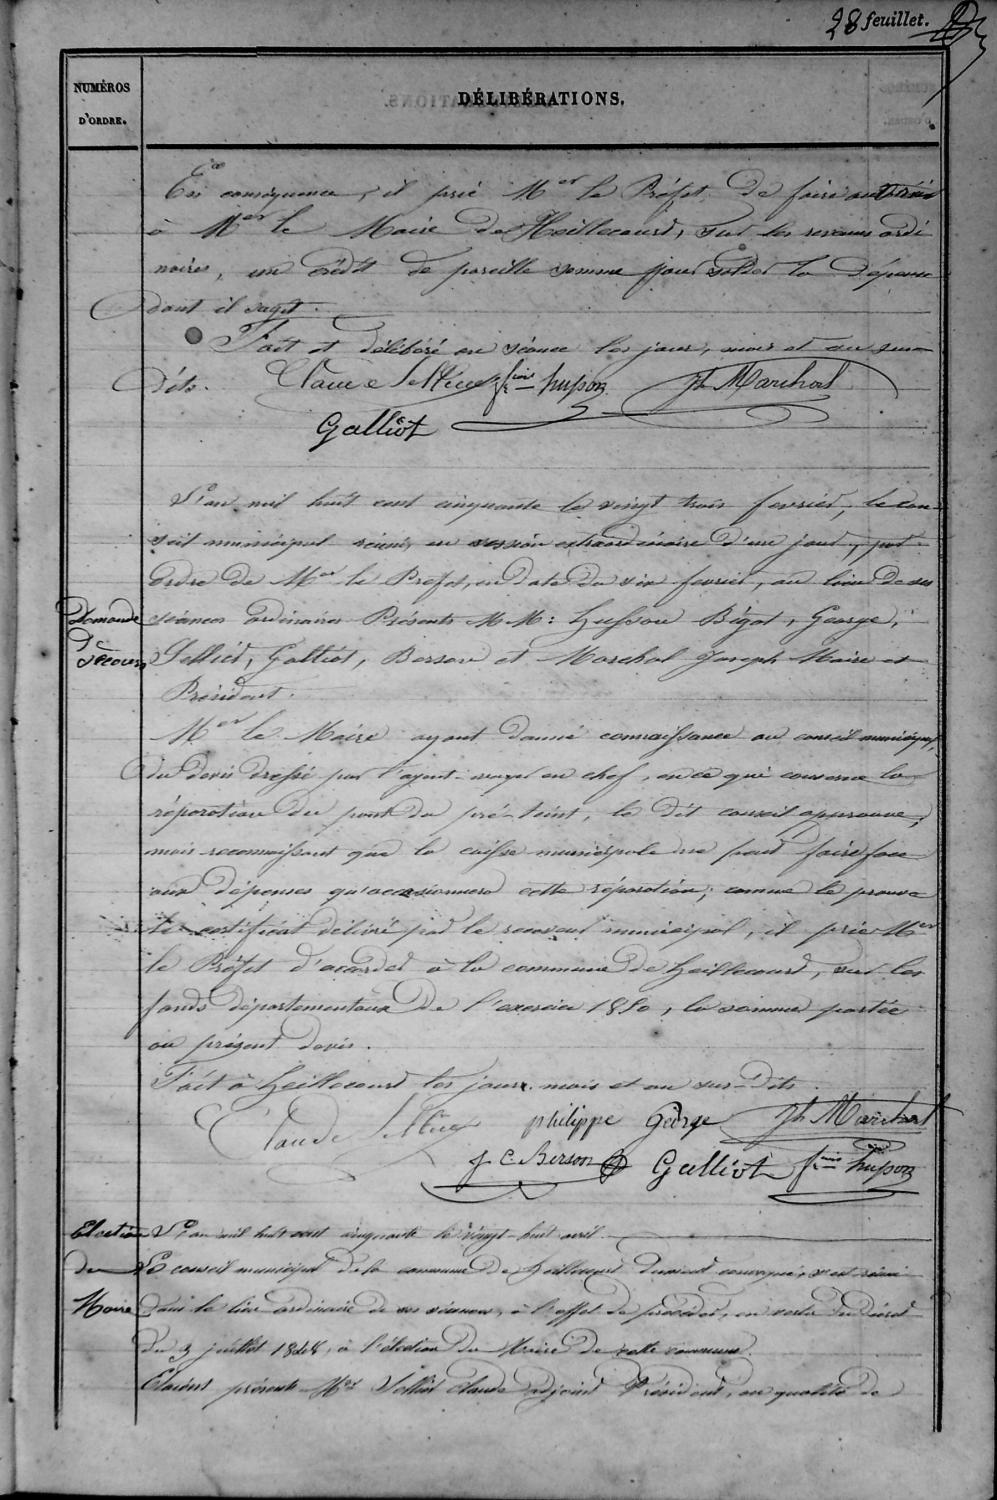 28 feuillet.
NUMÉROS
D'ORDRE.
DÉLIBÉRATIONS.
En conséquence, il prie Mer le Préfet, de faire ouvrir
à Mer le Maire de Heillecourt, sur les revenus ordi
naires, un crédit de pareille somme pour solder la dépense
dont il sagit.
Fait et délibéré en séance les jour, mois et an sus
dits. Claude Sellier fcois husson Jh Marchal
Galliot
L'an mil huit cent cinquante le vingt trois fevrier, le con-
seil municipal réuni, en session extraordinaire d'un jour, par
ordre de Mer le Préfet, en date du six fevrier, au lieu de ses
Demande séances ordinaires Présents M M: Husson Bigot, George,
de Sécours Sellier, Galliot, Berson et Marchal Joseph Maire et
Président.
Mer le Maire ayant donné connaissance au conseil municipal,
du devis dressé par l'agent-voyer en chef, en ce qui concerne la
réparation du pont du pré-, le dit conseil approuve;
mais reconnaissant que la caisse municipale ne peut faire face
aux dépenses qu'occasionnera cette réparation; comme le prouve
le certificat délivré par le receveur municipal, il prie Mer
le Préfet d'accorder à la commune de heillecourt, sur les
fonds départementaux de l'exercice 1850, la somme portée
au présent devis.
Fait à heillecourt les jour, mois et an sus-dits.
Claude Sellier philippe George Jh Marchal
J C. Berson Galliot fcois husson
Election L'an mil huit cent cinquante le vingt-huit avril
du Le conseil municipal de la commune de heillecourt dument convoqué, s'est réuni
Maire dans le lieu ordinaire de ses séances, à l'effet de procéder, en vertu du décret
du 3 juillet 1848, à l'élection du Maire de cette commune.
Etaient présents Mer Sellier Claude adjoint Président, en qualité de